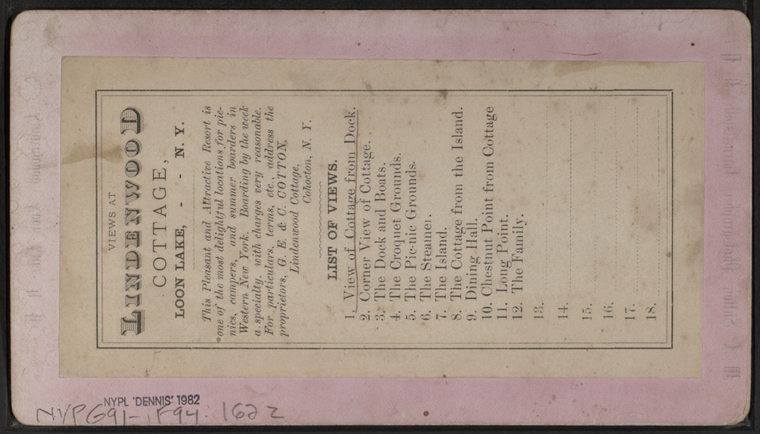 VIEWS AT
LINDENWOOD
COTTAGE,
LOON LAKE, - - N. Y.
This Pleasant and Attractive Resort is
one of the most delightful locations for pic-
nics, campers, and summer boarders in
Western New York. Boarding by the week
a specialty, with charges very reasonable.
For particulars, terms, etc., address the
proprietors, G. E. & C. COTTON,
Lindenwood Cottage,
Cohocton, N. Y.
LIST OF VIEWS.
1. View of Cottage from Dock.
2. Corner View of Cottage.
3. The Dock and Boats.
4. The Croquet Grounds.
5. The Pic-nic Grounds.
6. The Steamer.
7. The Island.
8. The Cottage from the Island.
9. Dining Hall.
10. Chestnut Point from Cottage
11. Long Point.
12. The Family.
13.
14.
15.
16.
17.
18.
NYPL 'DENNIS' 1982
NYPG91-F94. 1622